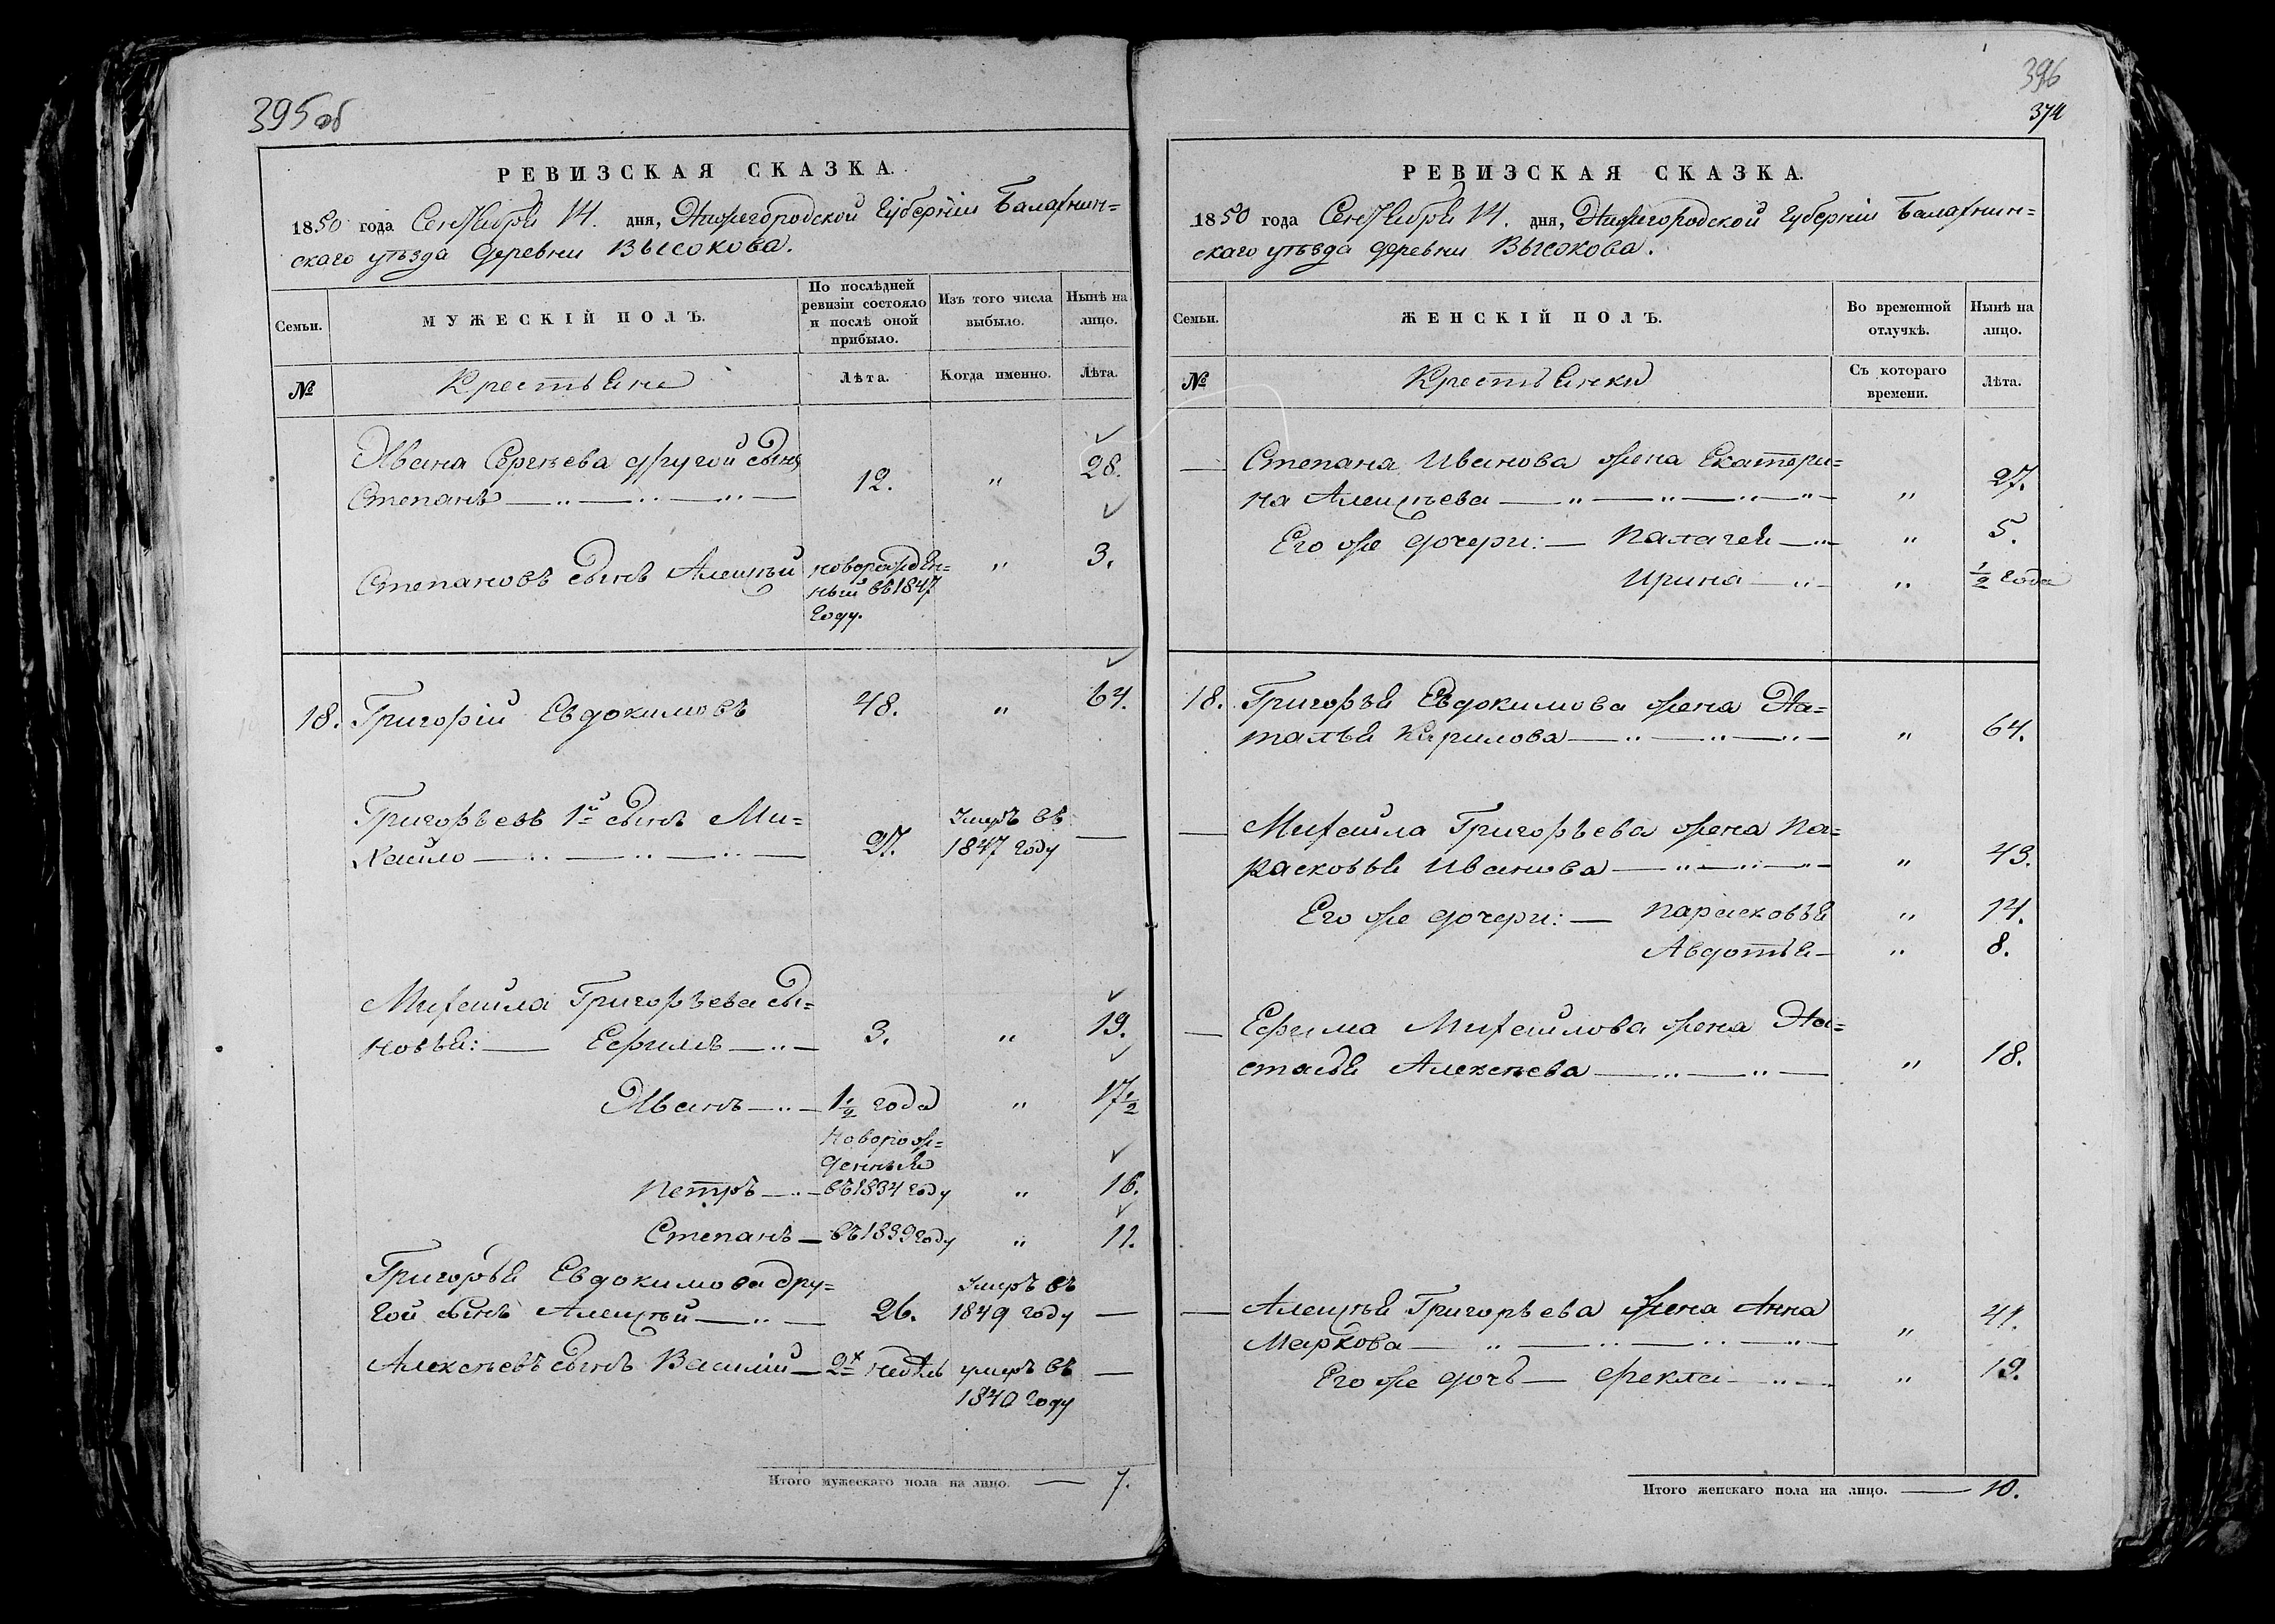 395 об
РЕВИЗСКАЯ СКАЗКА.
1850 года Сентября 14. дня, Нижегородской Губерніи Балахнин=
скаго уѣзда деревни Высокова.
Семьи.
МУЖЕСКІЙ ПОЛЪ.
По послѣдней
ревизіи состояло
и послѣ оной
прибыло.
Изъ того числа
выбыло.
Нынѣ на
лицо.
№
Крестьяне
Лѣта.
Когда именно.
Лѣта.
Ивана Сергѣева другой сынъ
Степанъ 12. " 28.
Степановъ сынъ Алексѣй новорожден= " 3.
ный въ 1847
году.
18. Григорій Евдокимовъ 48. " 64.
Григорьевъ 1й сынъ Ми= Умеръ въ
хайло 27. 1847 году —
Михайла Григорьева сы=
новья: — Ефимъ 3. " 19.
Иванъ 1½ года " 17½
Новорож=
денный
Петръ въ 1834 году " 16.
Степанъ — въ 1839 году " 11.
Григорья Евдокимова дру= Умеръ въ
гой сынъ Алексѣй 26. 1849 году —
Алексѣевъ сынъ Василій — 2х недѣль умеръ въ —
1840 году
Итого мужескаго пола на лицо. — 7.
396
374
РЕВИЗСКАЯ СКАЗКА.
1850 года Сентября 14. дня, Нижегородской Губерніи Балахнин=
скаго уѣзда деревни Высокова.
Семьи.
ЖЕНСКІЙ ПОЛЪ.
Во временной
отлучкѣ.
Нынѣ на
лицо.
№
Крестьянки
Съ котораго
времени.
Лѣта.
— Степана Иванова жена Екатери=
на Алексѣева " 27.
Его же дочери: — Палагея " 5.
Ирина " ½ года
18. Григорья Евдокимова жена На=
талья Кирилова " 64.
— Михайла Григорьева жена Па=
расковья Иванова " 43.
Его же дочери: — Парасковья " 14.
Авдотья — " 8.
— Ефима Михайлова жена На=
стасья Алексѣева " 18.
— Алексѣя Григорьева жена Анна
Маркова " 41.
Его же дочь — Фекла " 19.
Итого женскаго пола на лицо. — 10.